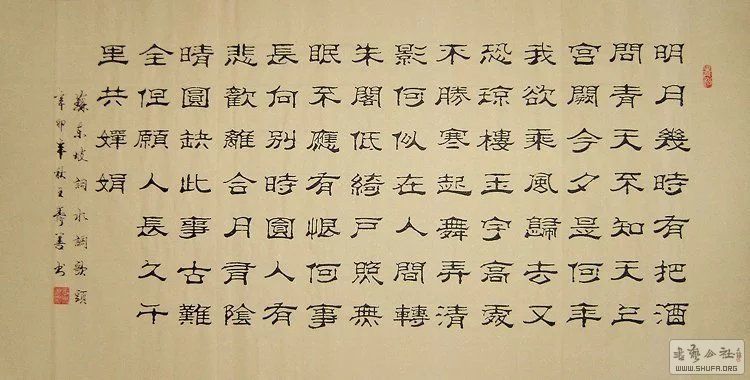 明月幾時有把酒
問青天不知天上
宮闕今夕是何年
我欲乘風歸去又
恐琼樓玉宇高處
不勝寒起舞弄清
影何似在人間轉
朱閣低綺戶照無
眠不應有恨何事
長向別時圓人有
悲歡離合月有陰
晴圓缺此事古難
全但願人長久千
里共嬋娟
蘇東坡詞水調歌頭
辛卯年秋王善书
書藝公社
WWW.SHUFA.ORG